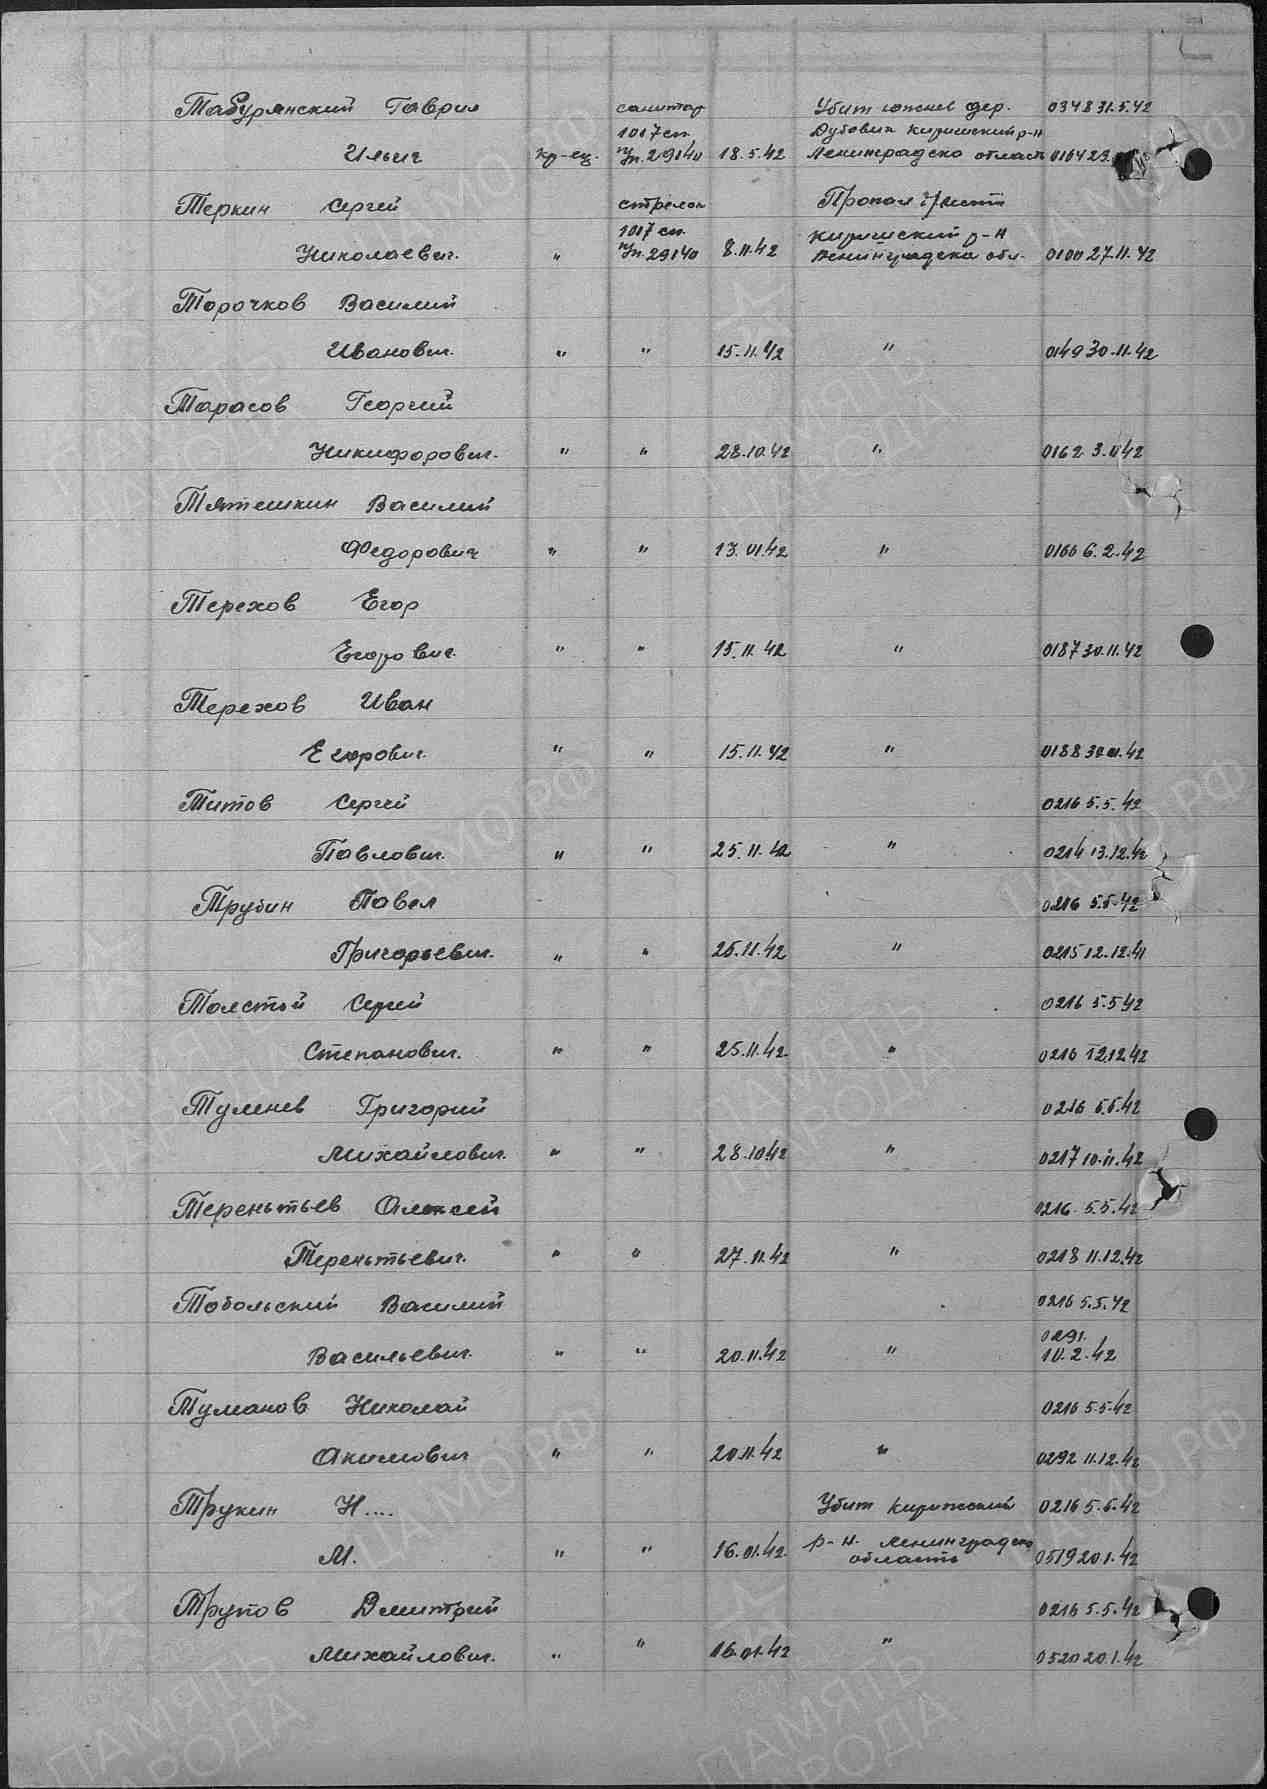 Табурянский Гаврил санитар Убит южнее дер. 0348 31.5.42
1017 сп. Дубовик Киришский р-н
Ильич кр-ец. п/п. 29140 18.5.42 Ленинградско область 016429
Теркин Сергей стрелок Пропал б/вести
1017 сп. Киришский р-н
Николаевич. " п/п. 29140 8.11.42 Ленинградско обл. 0100 27.11.42
Торочков Василий
Иванович. " " 15.11.42 " 0149 30.11.42
Тарасов Георгий
Никифорович. " " 28.10.42 " 0162 3.11.42
Тятешкин Василий
Федорович " " 13.01.42 " 0166 6.2.42
Терехов Егор
Егорович. " " 15.11.42 " 0187 30.11.42
Терехов Иван
Егорович. " " 15.11.42 " 0188 42
Титов Сергей 0216 5.5.42
Павлович. " " 25.11.42 " 0214 13.12.42
Трубин Павел 0216 5.5.42
Григорьевич. " " 25.11.42 " 0215 12.12.41
Толстой Сергей 0216 5.5.42
Степанович. " " 25.11.42 " 0216 12.12.42
Туленев Григорий 0216 5.5.42
Михайлович. " " 28.10.42 " 0217 10.11.42
Терентьев Алексей 0216 5.5.42
Терентьевич. " " 27.11.42 " 0218 11.12.42
Тобольский Василий 0216 5.5.42
0291.
Васильевич. " " 20.11.42 " 10.2.42
Туманов Николай 0216 5.5.42
Акимович " " 20.11.42 " 0292 11.12.42
Трукин Н.... Убит Киришский 0216 5.5.42
М. " " 16.01.42. р-н. Ленинградско
область 0519 20.1.42
Трупов Дмитрий 0216 5.5.42
Михайлович. " " 16.01.42 " 0520 20.1.42
ПАМЯТЬ НАРОДА
ЦАМО РФ